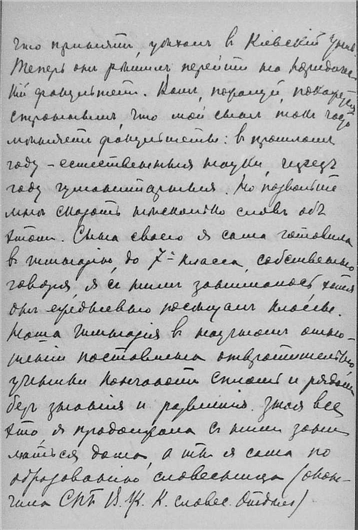 что приняты, уѣхали в Кіевскій Унив.
Теперь онъ рѣшилъ перейти на юридиче-
скій факультетъ. Вамъ, пожалуй, покажется
страннымъ что мой сынъ такъ часто
мѣняетъ факультеты: в прошломъ
году - естественныя науки,
году гуманитарныя. Но позвольте
мнѣ сказать нѣсколько словъ объ
этомъ. Сына своего я сама готовила
в гимназію, до 7-го класса, собственно
говоря я с нимъ занималась, хотя
онъ ежедневно посѣщалъ классы.
Наша гимназія в научномъ отно-
шеніи поставлена отвратительно,
ученики кончаютъ сплошь и рядомъ
безъ знанія и развитія. Зная все
это, я продолжала с нимъ зани-
маться дома, а т. к. я сама по
образованію словесница (окон-
чила СПБ В. Ж. К. словес. Отдѣл.)